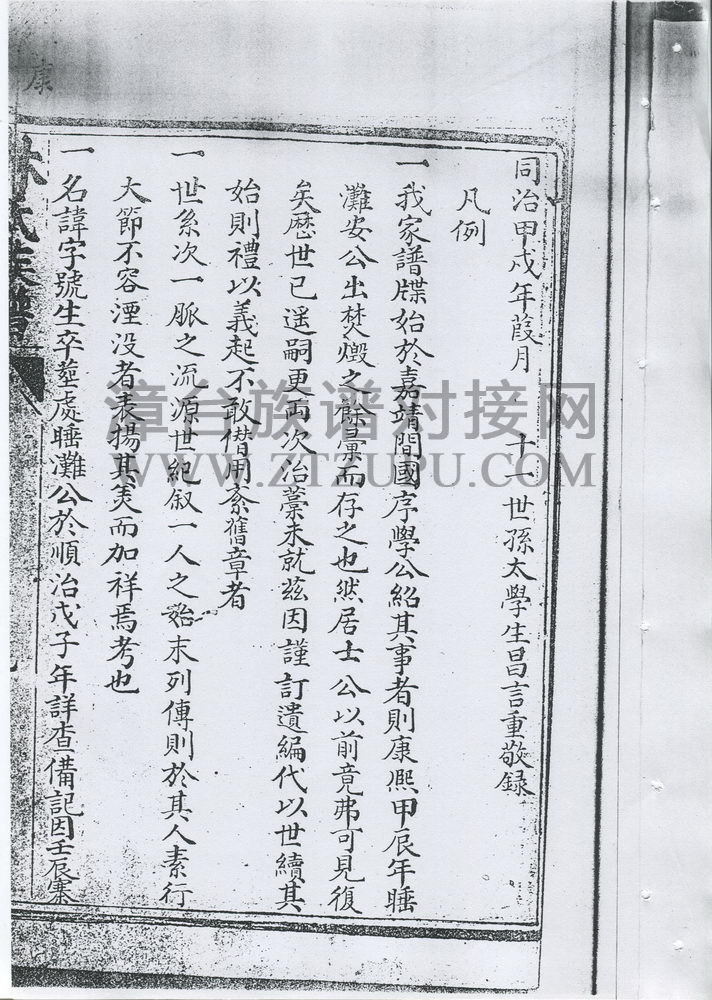 康
同治甲戌年葭月 十一世孫太學生昌言重敬録
凡例
一我家譜牒始於嘉靖間國序學公紹其事者則康熙甲辰年睡
灘安公出焚燬之餘彙而存之也然居士公以前竟弗可見復
矣歷世已遥嗣更両次冶藁未就兹因謹訂遺編代以世續其
始則禮以義起不敢僭用紊舊章者
一世系次一脈之流源世紀叙一人之始末列傳則於其人素行
大節不容湮没者表揚其美而加祥焉考也
一名諱字號生卒塟處睡灘公於順治戊子年詳查備記因壬辰寨
林氏族譜
漳台族谱对接网
WWW.ZTZUPU.COM